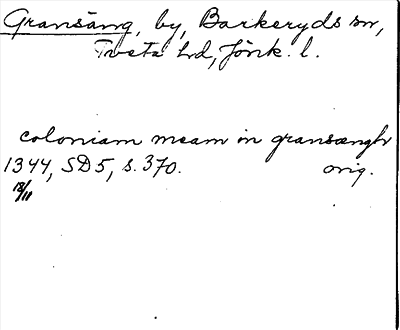 Gransäng, by, Barkeryds sn,
Tveta hd, Jönk. l.
coloniam meam in gransænghr
1344, SD5, s. 370. orig.
18/11